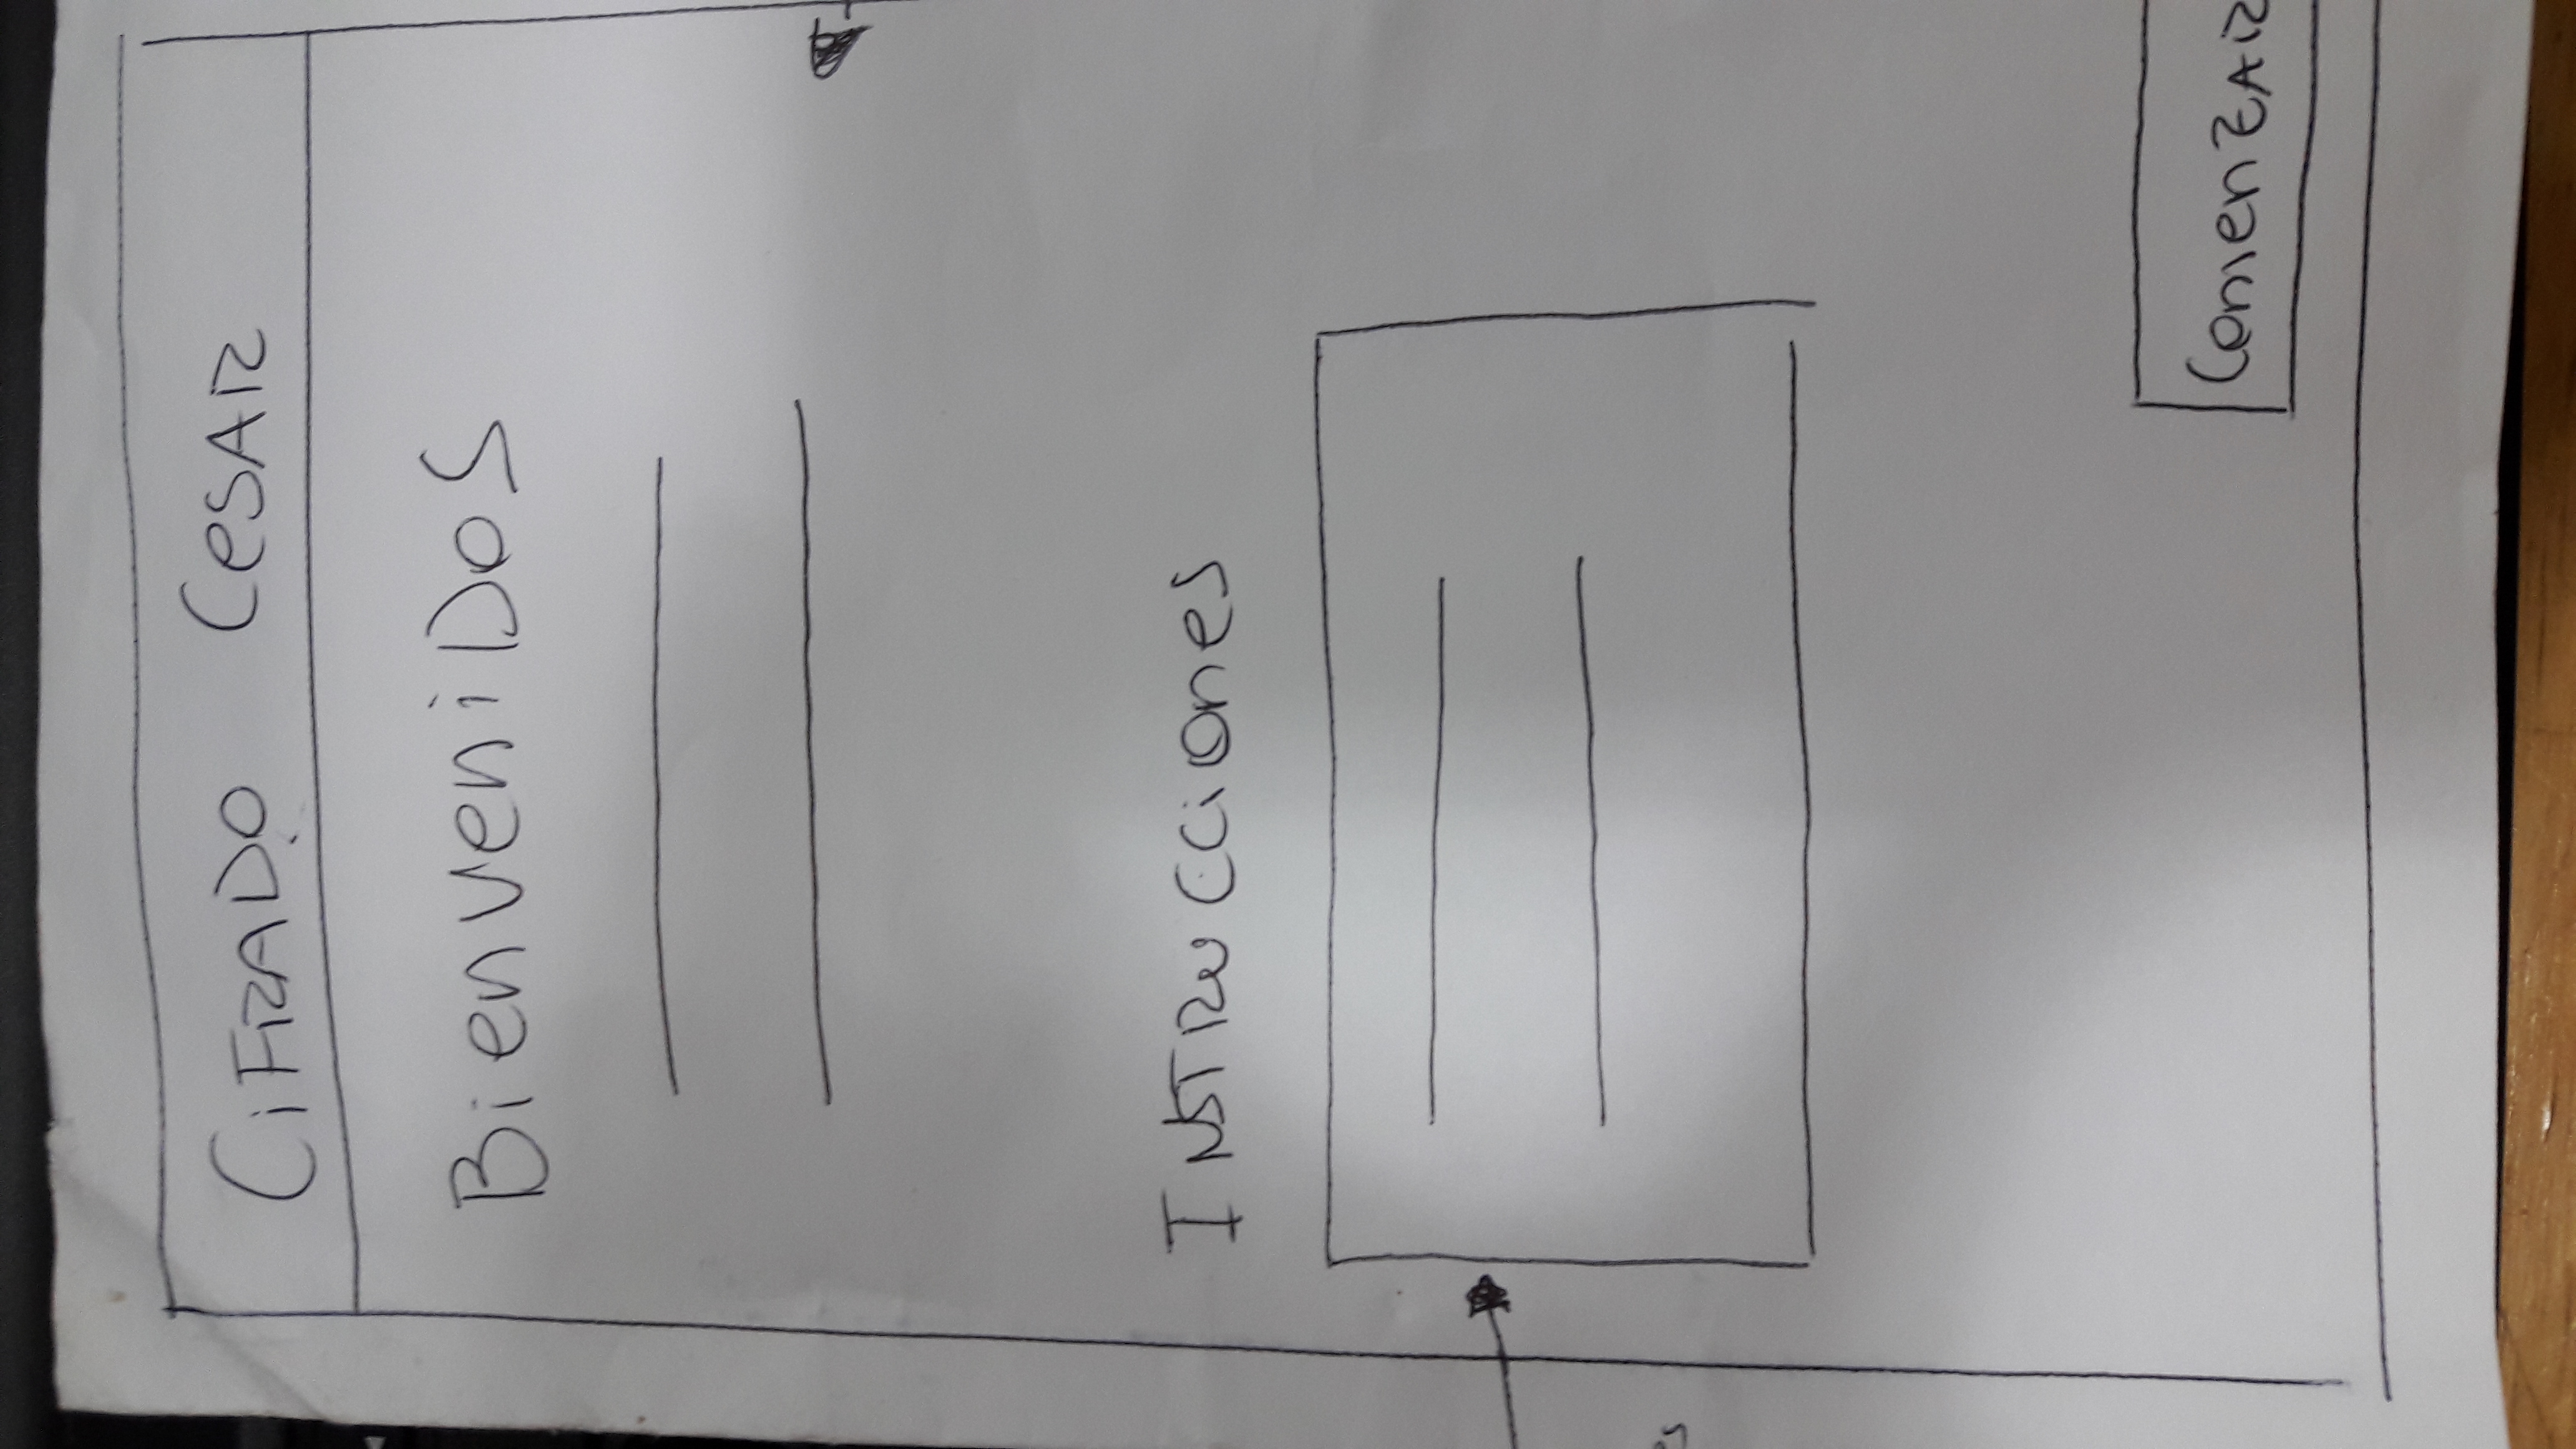 CIFRADO CESAR
BienveniDoS
INSTRUCCiones
ComenZAR